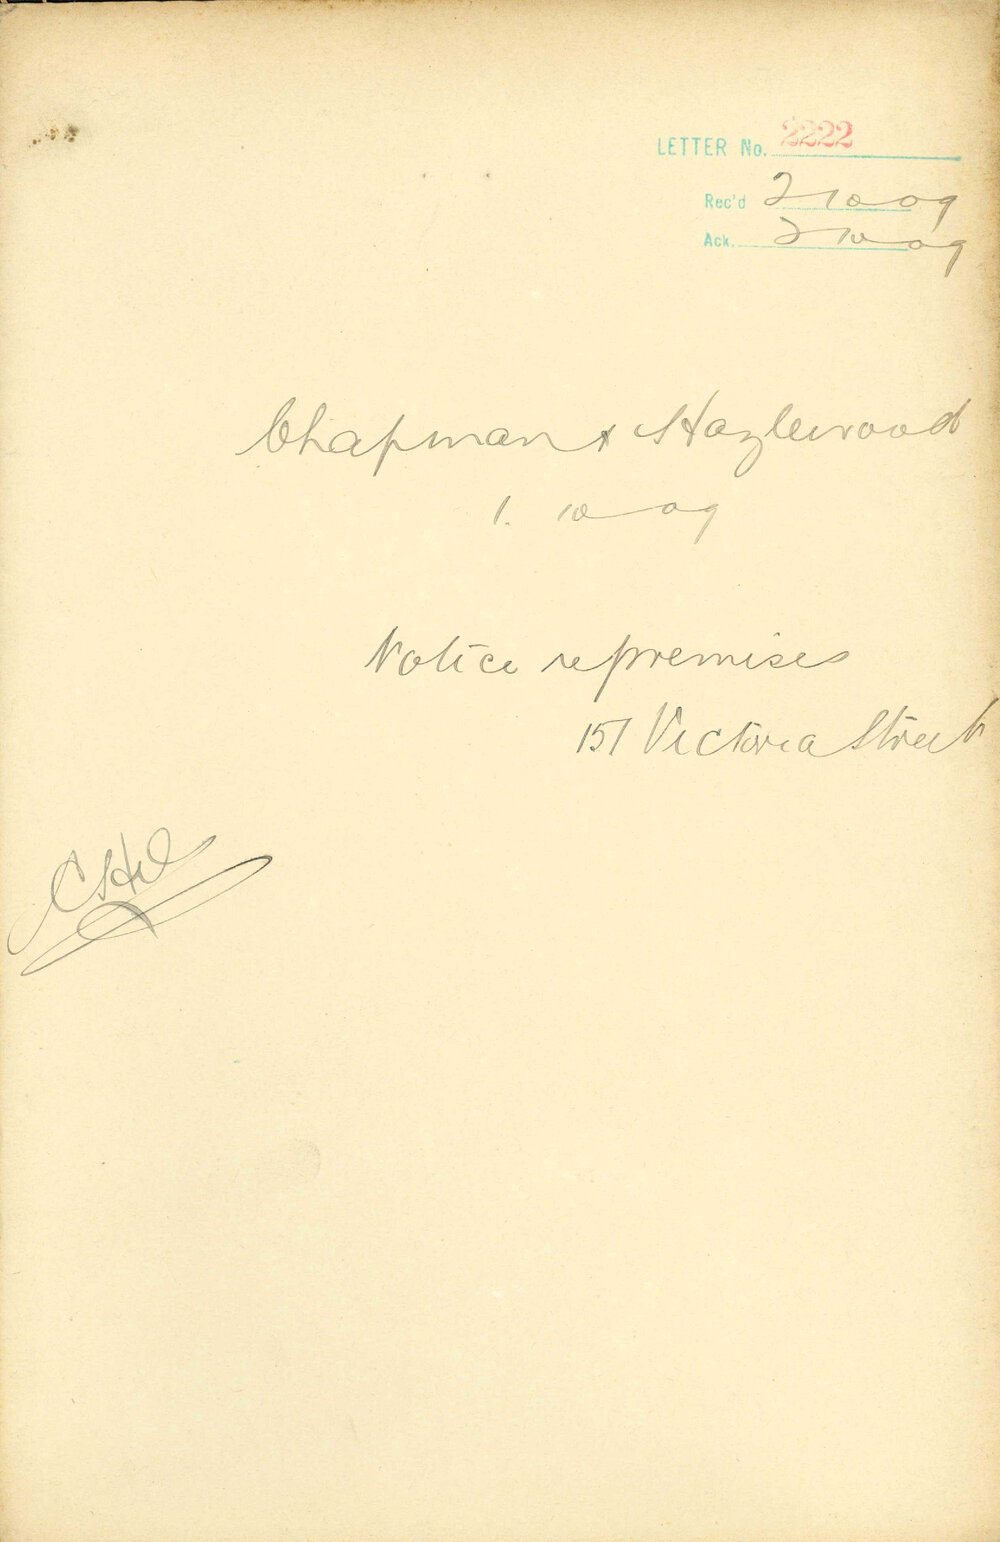 LETTER No. 2222
Rec'd 2 10 09
Ack. 2 10 09
Chapman & Hazlewood
1. 10 09
Notice re premises
151 Victoria Street